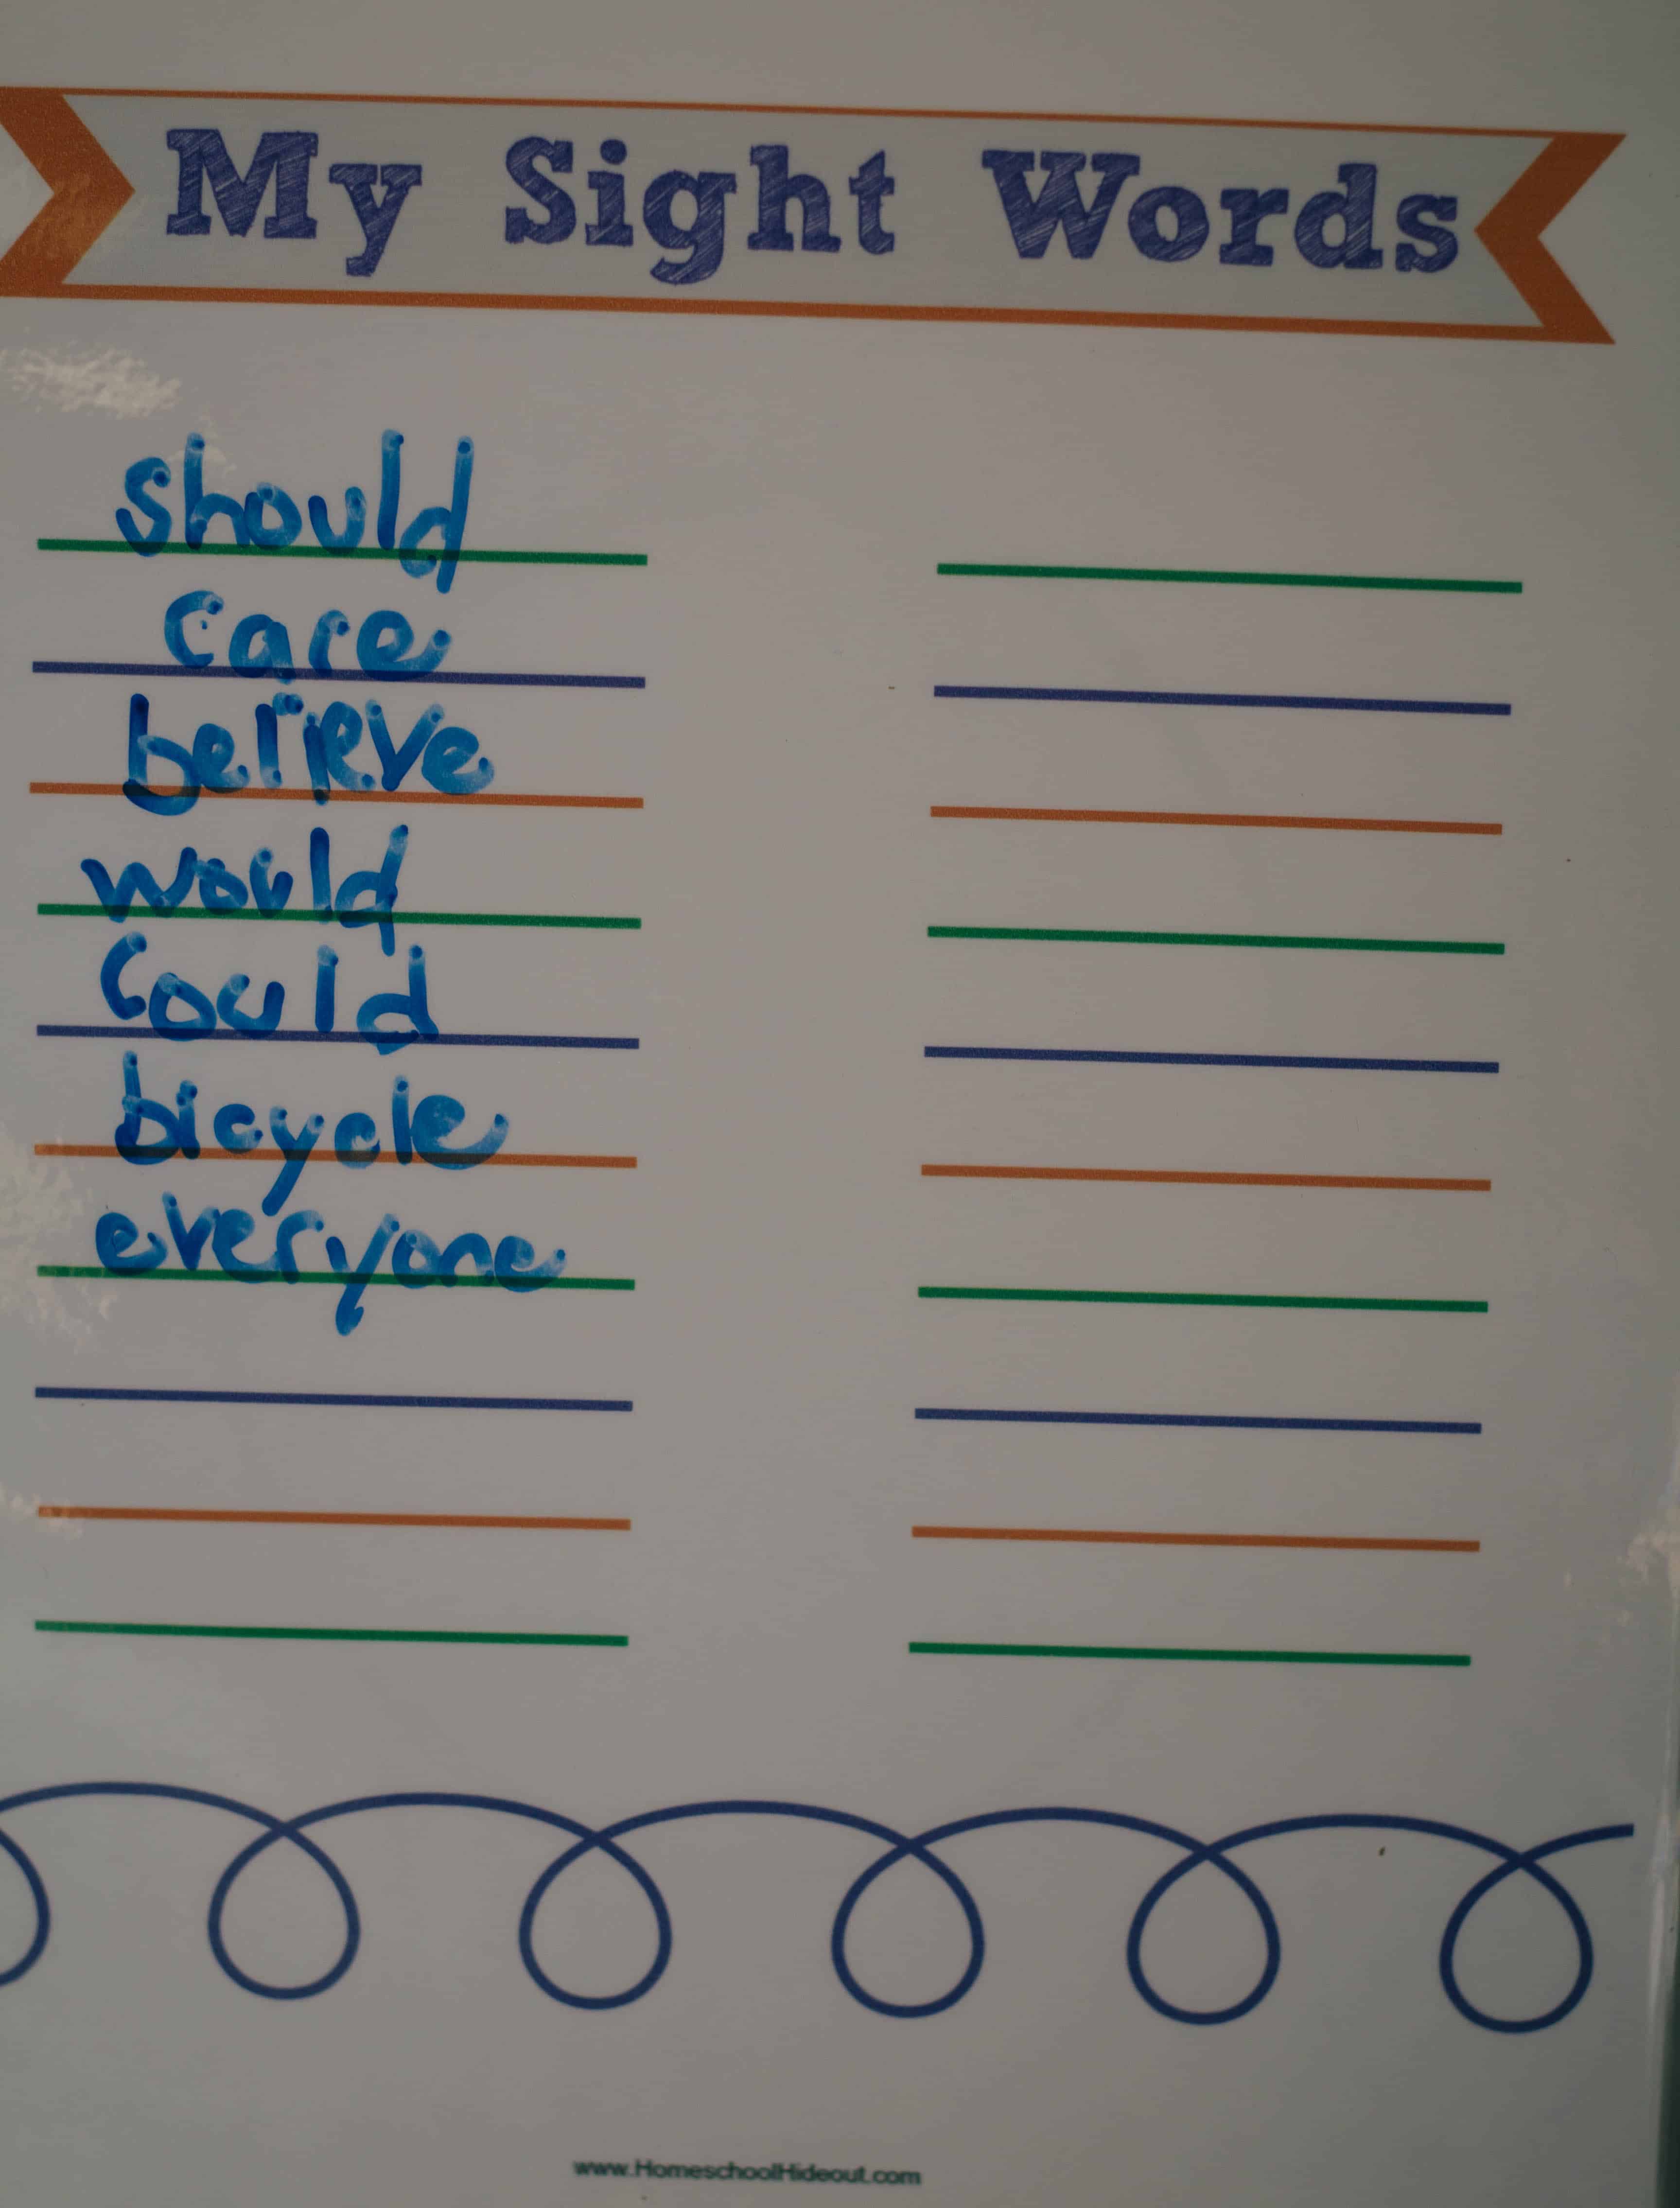 My Sight Words
should
care
believe
would
could
bicycle
everyone
www.HomeschoolHideout.com